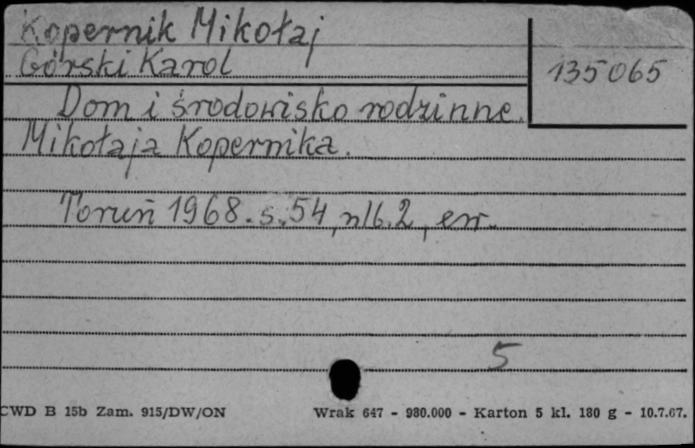 Kopernik Mikołaj
Górski Karol
135065
Dom i środowisko rodzinne
Mikołaja Kopernika.
Toruń 1968. s. 54, nlb. 2, err.
5
CWD B 15b Zam. 915/DW/ON
Wrak 647 - 980.000 - Karton 5 kl. 180 g - 10.7.67.